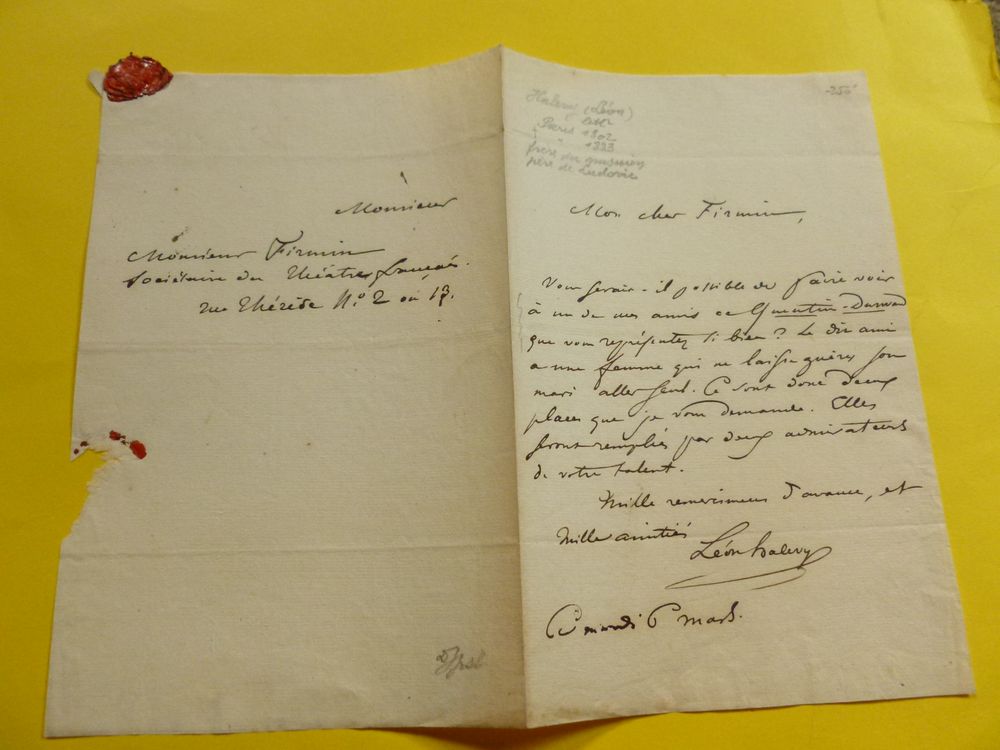 Monsieur
Monsieur Firmin
Sociétaire du Théâtre français.
rue Thérèse N.o 2 ou 13.
Halevy (Léon)
Paris 1802
1883
frère du musicien
père de Ludovic
Mon cher Firmin,
Vous serait-il possible de faire voir
à un de mes amis ce Quentin-Durward
que vous représentez si bien? Le dit ami
a une femme qui ne laisse guères son
mari aller seul. Ce sont donc deux
places que je vous demande. Elles
seront remplies par deux admirateurs
de votre talent.
Mille remercimens d'avance, et
Mille amitiés
Léon halevy
Ce mardi 6 mars.